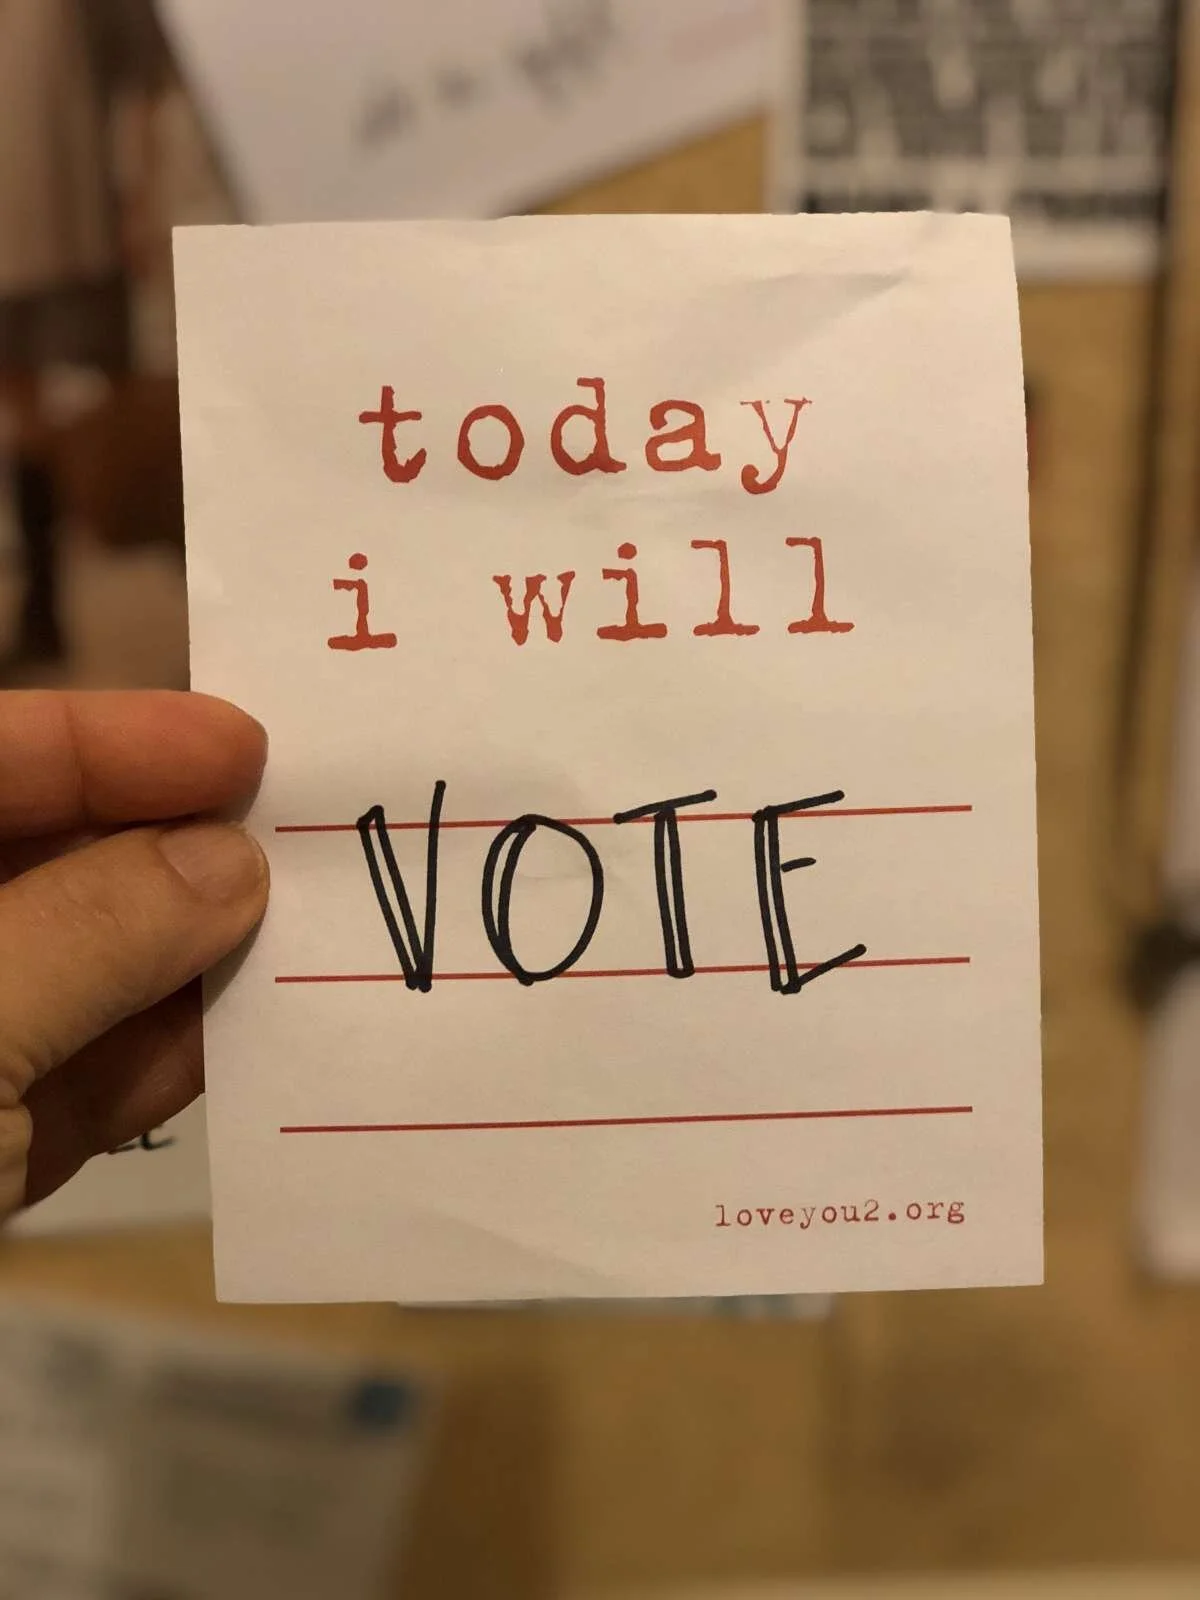 today
i will
VOTE
loveyou2.org